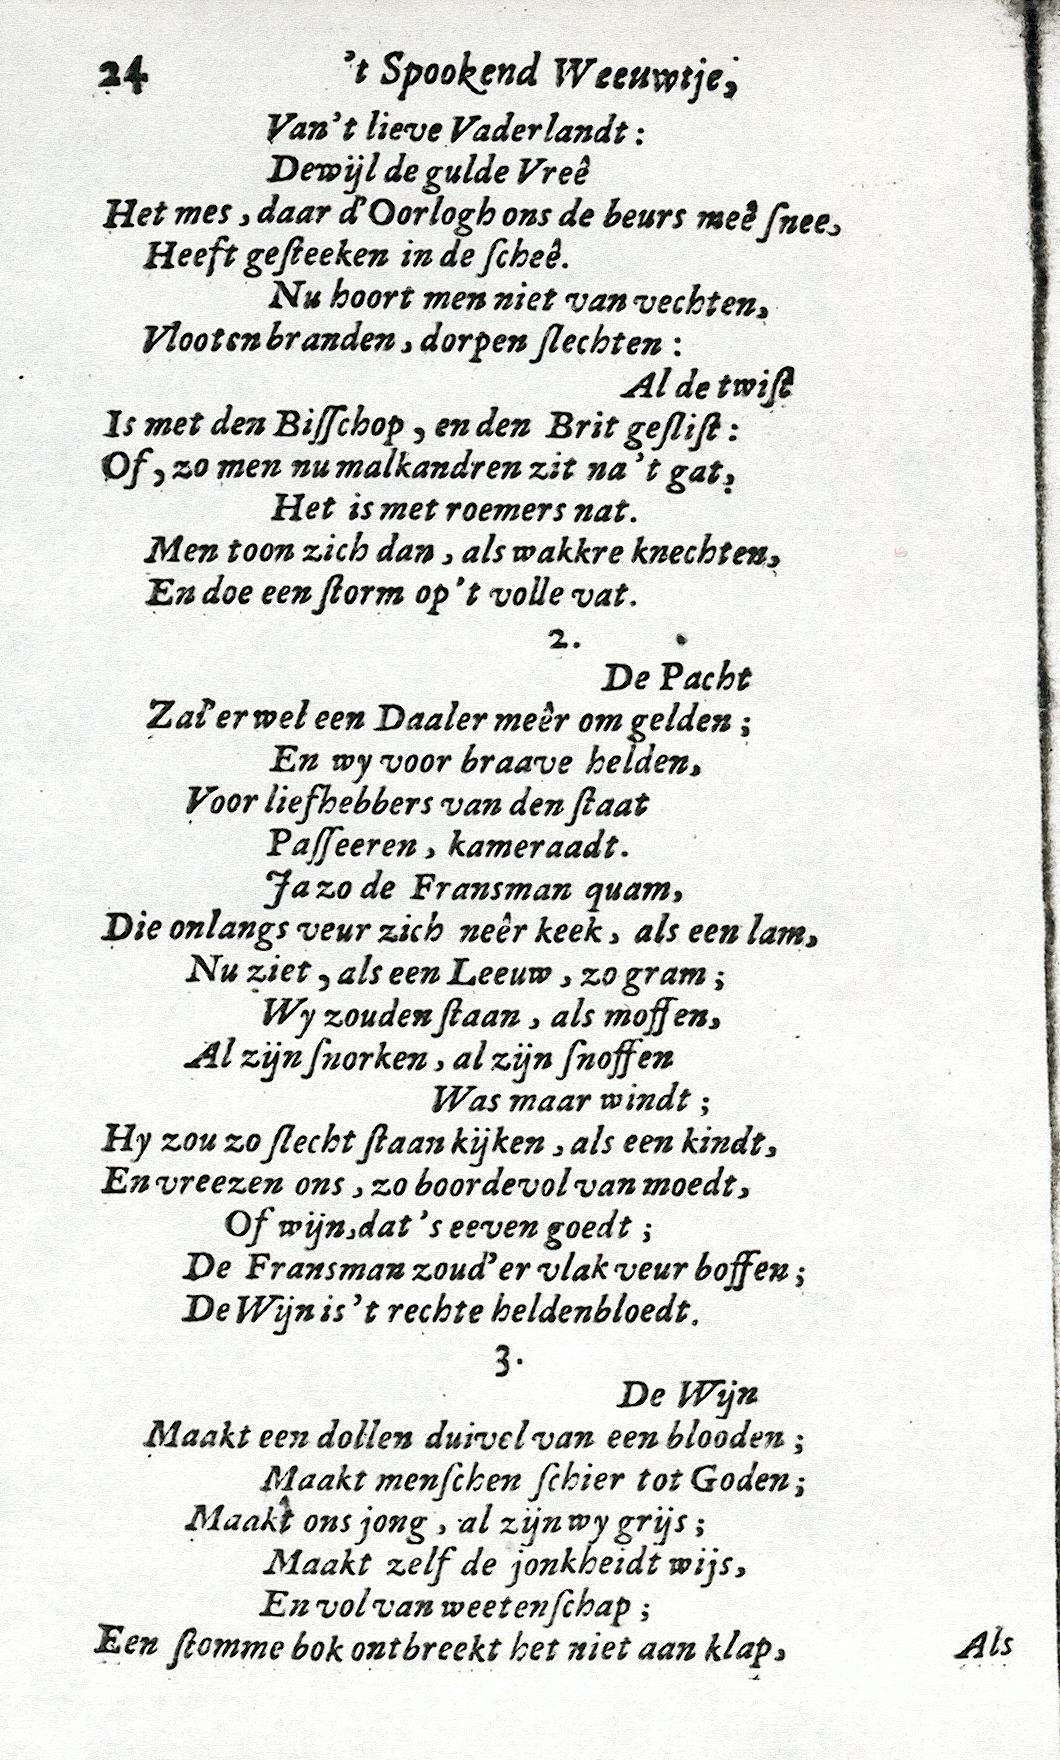 24 't Spookend Weeuwtje,
Van't lieve Vaderlandt:
Dewijl de gulde Vreê
Het mes, daar d'Oorlogh ons de beurs meê ſnee,
Heeft geſteeken in de ſcheê.
Nu hoort men niet van vechten,
Vlooten branden, dorpen ſlechten:
Al de twiſt
Is met den Biſſchop, en den Brit geſliſt:
Of, zo men nu malkandren zit na 't gat,
Het is met roemers nat.
Men toon zich dan, als wakkre knechten,
En doe een ſtorm op't volle vat.
2.
De Pacht
Zal'er wel een Daaler meêr om gelden;
En wy voor braave helden,
Voor liefhebbers van den ſtaat
Paſſeeren, kameraadt.
Ja zo de Fransman quam,
Die onlangs veur zich neêr keek, als een lam,
Nu ziet, als een Leeuw, zo gram;
Wy zouden ſtaan, als moffen,
Al zijn ſnorken, al zijn ſnoffen
Was maar windt;
Hy zou zo ſlecht ſtaan kijken, als een kindt,
En vreezen ons, zo boordevol van moedt,
Of wijn, dat's eeven goedt;
De Fransman zoud'er vlak veur boffen;
De Wijn is 't rechte heldenbloedt.
3.
De Wijn
Maakt een dollen duivel van een blooden;
Maakt menſchen ſchier tot Goden;
Maakt ons jong, al zijn wy grijs;
Maakt zelf de jonkheidt wijs,
En vol van weetenſchap;
Een ſtomme bok ontbreekt het niet aan klap,
Als